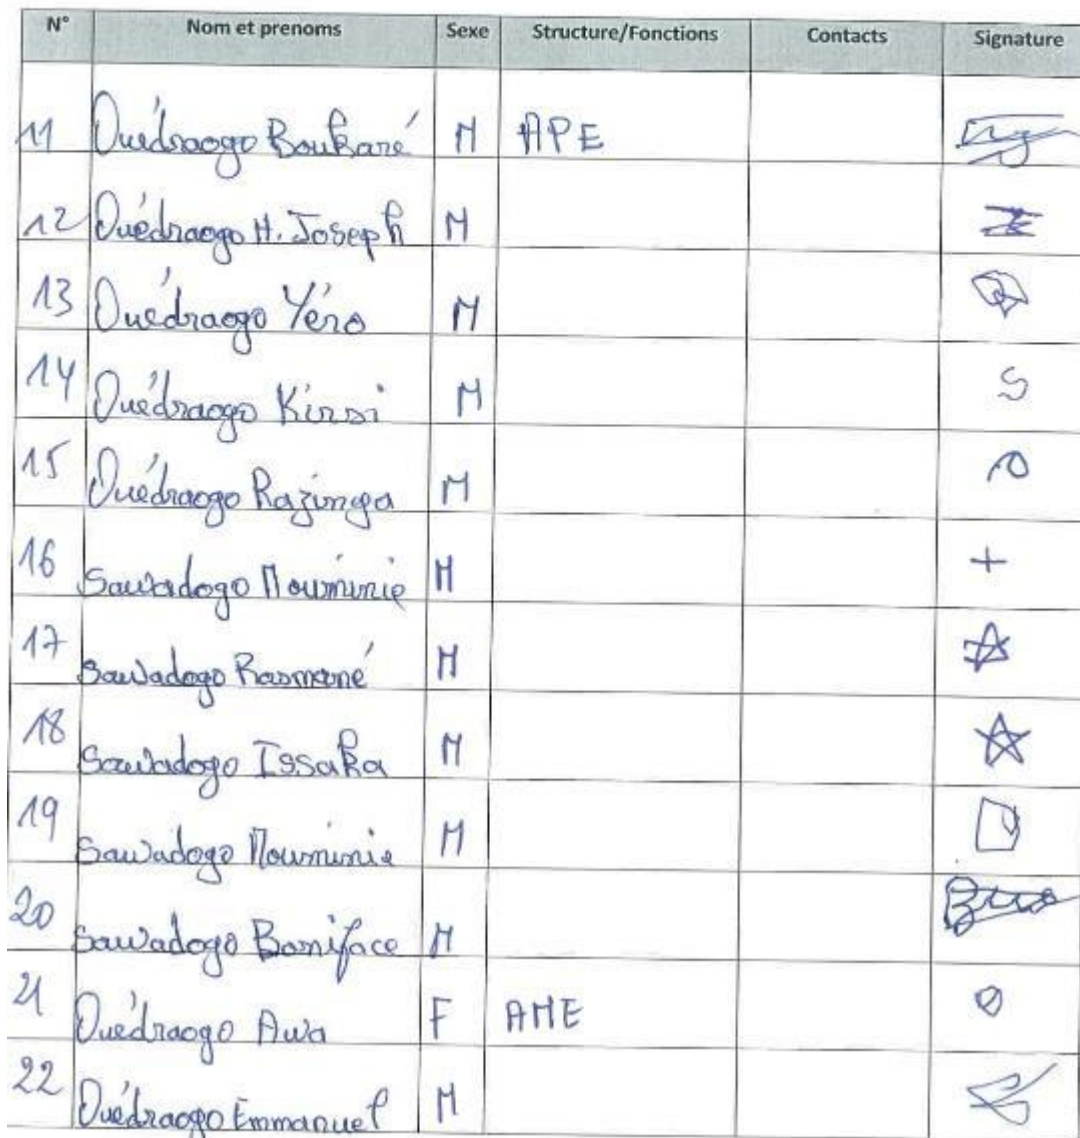 N° Nom et prenoms Sexe Structure/Fonctions Contacts Signature
11 Ouédraogo Boukaré M APE
12 Ouédraogo H. Joseph M
13 Ouédraogo Yéro M
14 Ouédraogo Kirsi M
15 Ouédraogo Razinga M
16 Sawadogo Mouminie M
17 Sawadogo Rasmané M
18 Sawadogo Issaka M
19 Sawadogo Mouminie M
20 Sawadogo Boniface M
21 Ouédraogo Awa F AME
22 Ouédraogo Emmanuel M